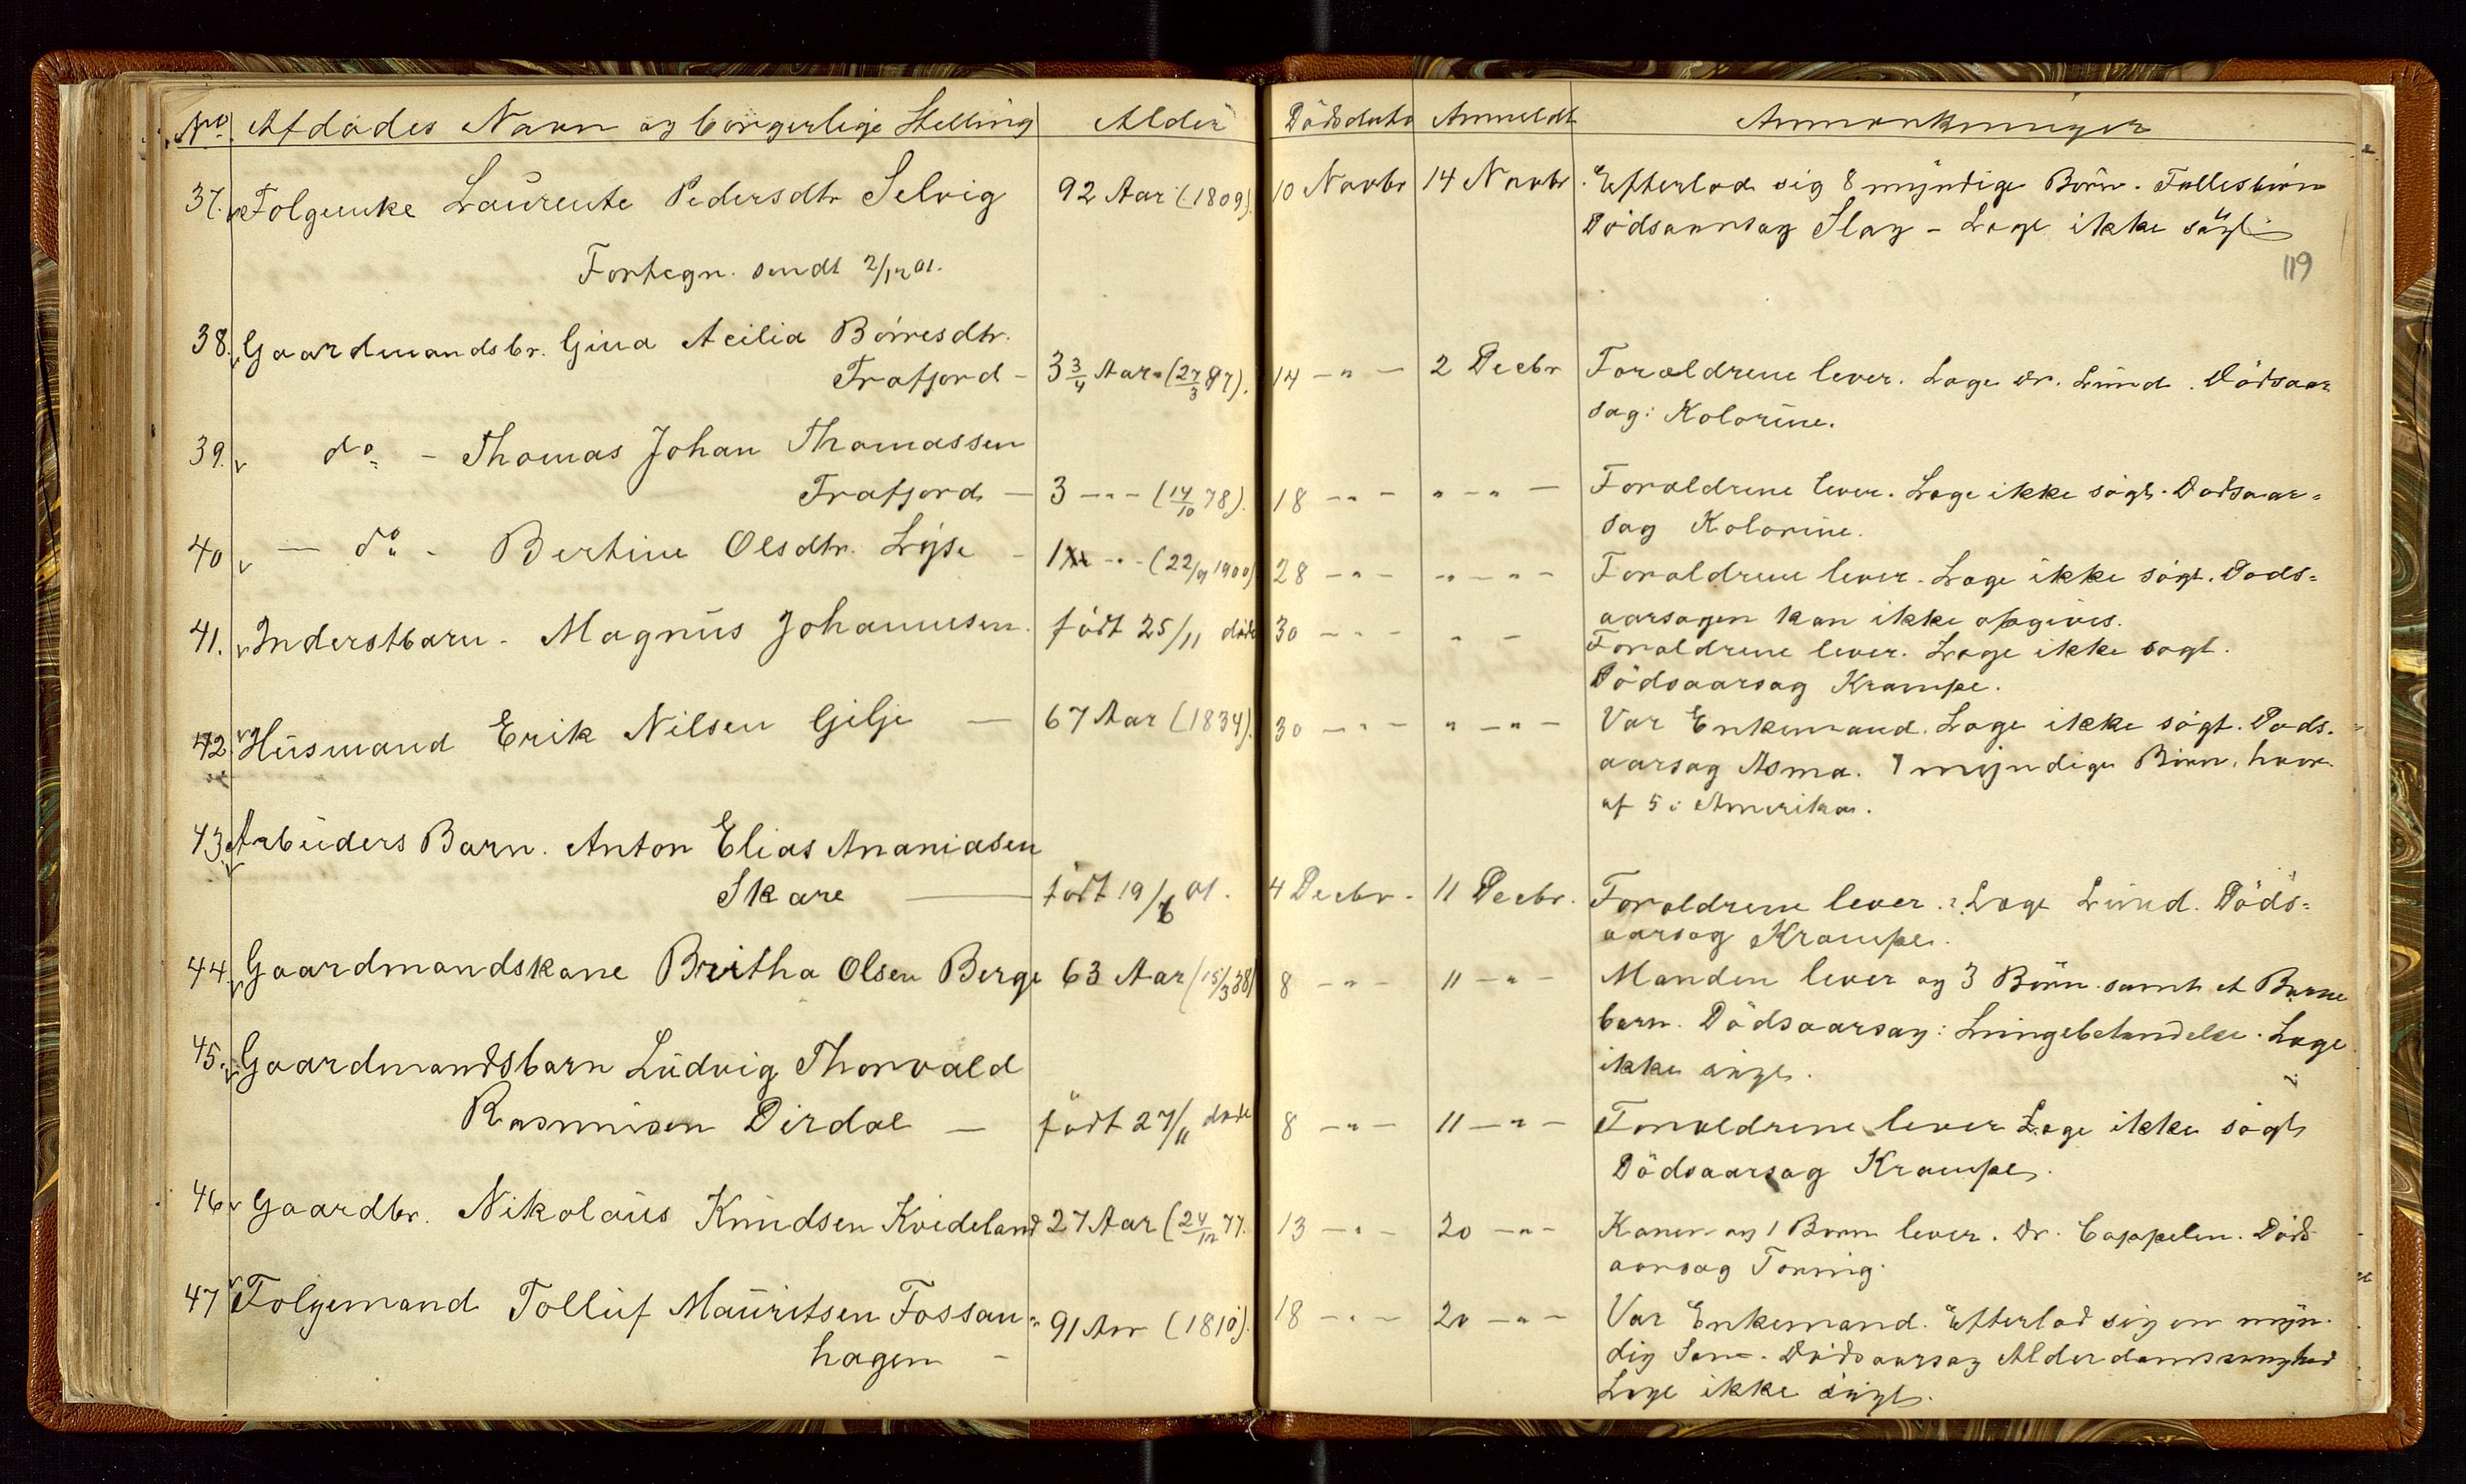 No. Afdødes Navn og borgerlige Stilling Alder Dödsdato Anmeldt Anmærkninger
37. Folgeenke Laurente Pedersdtr Selvig 92 Aar (1809). 10 Novbr 14 Novbr. Efterlod sig 8 myndige Börn. Fællesbörn
Dödsaarsag Slag - Læge ikke sögt
Fortegn. sendt 2/12 01.
119
38. Gaardmandsbr. Gina Acilia Börresdtr.
Frafjord - 3 3/4 Aar. (27/3 97). 14 - " - 2 Decbr Forældrene lever. Læge Dr. Lund. Dödsaar
sag: Kolorine.
39. do - Thomas Johan Thomassen
Frafjord - 3 - " - (14/10 98). 18 - " - " - " - Forældrene lever. Læge ikke sögt. Dødsaar=
sag Kolorine.
40 - do - Bertine Olsdtr. Lyse - 1 - " - (22/9 1900) 28 - " - " - " - Forældrene lever. Læge ikke sögt. Døds=
aarsagen kan ikke opgives.
41. Inderstbarn - Magnus Johannesen. födt 25/11 døde 30 - " - " - Forældrene lever. Læge ikke sögt.
Dödsaarsag Krampe.
42. Husmand Erik Nilsen Gilje - 67 Aar (1834). 30 - " - " - " - Var Enkemand. Læge ikke sögt. Döds.
aarsag Asma. 7 myndige Börn, hvor
af 5 i Amerika.
43. Arbeiders Barn. Anton Elias Ananiasen
Skare födt 19/6 01. 4 Decbr. 11 Decbr. Forældrene lever. Læge Lund. Döds=
aarsag Krampe.
44. Gaardmandskone Britha Olsen Berge 63 Aar (15/3 38) 8 - " - 11 - " - Manden lever og 3 Börn samt et Barne
barn. Dödsaarsag: Lungebetændelse. Læge
ikke sögt.
45. Gaardmandsbarn Ludvig Thorvald
Rasmusen Dirdal - födt 27/11 døde 8 - " - 11 - " - Forældrene lever Læge ikke sögt
Dödsaarsag Krampe.
46 Gaardbr. Nikolaus Knudsen Kvideland 27 Aar (24/12 77. 13 - " - 20 - " - Konen og 1 Barn lever. Dr. Cappelen. Döds
aarsag Tæring.
47 Folgemand Tolluf Mauritsen Fossan=
hagen - 91 Aar (1810). 18 - " - 20 - " - Var Enkemand. Efterlod sig en myn.
dig Søn. Dödsaarsag Alderdomssvaghed
Læge ikke sögt.